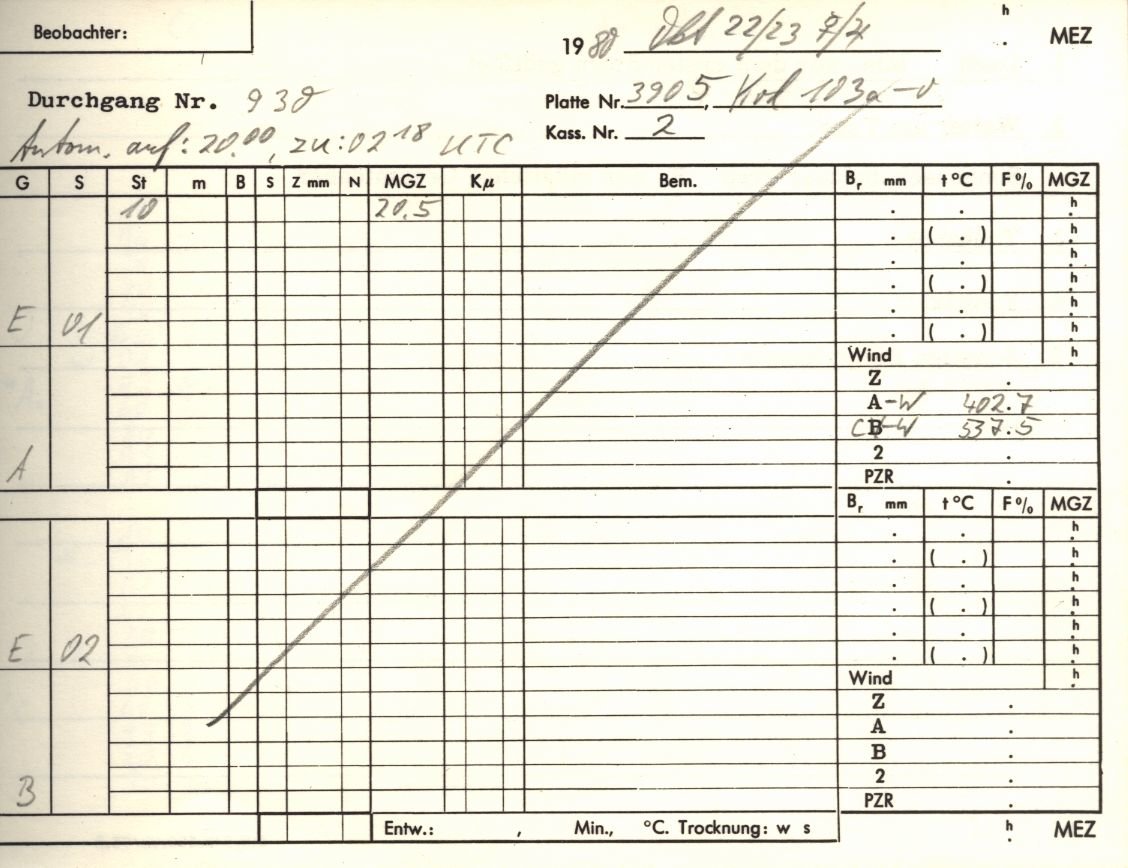 Beobachter:
1980 Okt 22/23 h MEZ
Durchgang Nr. 930
Platte Nr. 3905, Kod 103a-O
Kass. Nr. 2
Autom. auf: 20.00, zu: 02 18 UTC
G S St m B S Z mm N MGZ Kμ Bem. Br mm t °C F % MGZ
10 20.5 . . h
. ( . ) h
. . h
. ( . ) h
. . h
E 01 . ( . ) h
Wind h
Z .
A-W 402.7
B-W 537.5
A 2 .
PZR .
Br mm t °C F % MGZ
. . h
. ( . ) h
. . h
. ( . ) h
. . h
E 02 . ( . ) h
Wind h
Z .
A .
B .
2 .
B PZR .
Entw.: , Min., °C. Trocknung: w s h MEZ